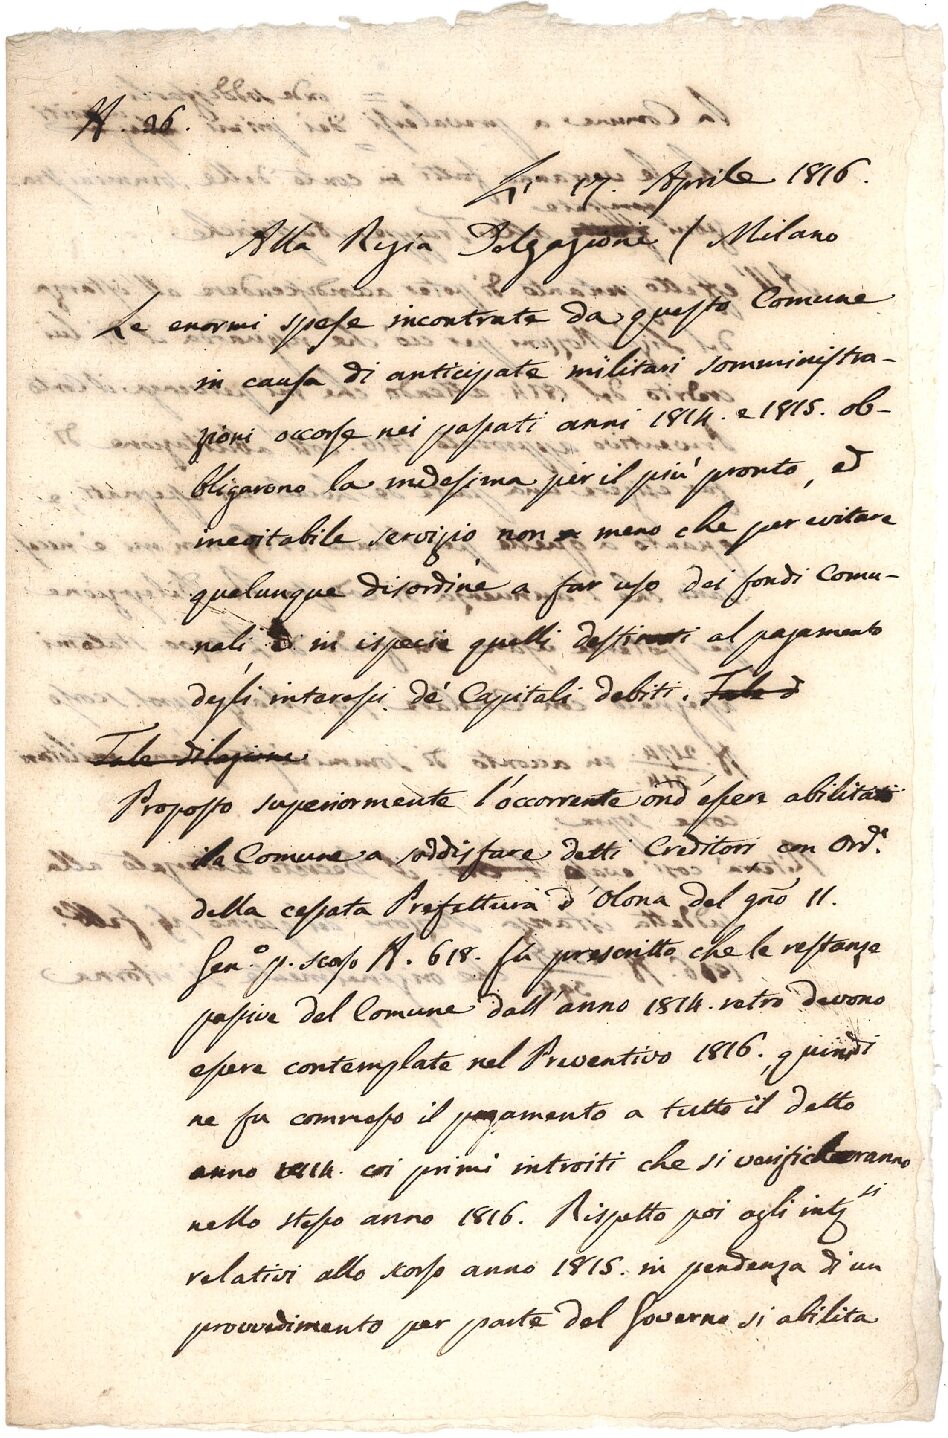 N. 26.
Li 17. Aprile 1816.
Alla Regia Delegazione / Milano
Le enormi spese incontrate da questo Comune
in causa di anticipate militari somministra-
zioni occorse nei passati anni 1814. e 1815. ob-
bligarono la medesima per il più pronto, ed
inevitabile servizio non meno che per evitare
qualunque disordine a far uso dei fondi Comu-
nali in ispecie quelli destinati al pagamento
degli interessi de' Capitali debiti. Tale d
Tale dilazione
Proposto superiormente l'occorrente ond'essere abilitati
la Comune a soddisfare detti Creditori con Ord.ª
della cessata Prefettura d'Olona del gno 11.
Gen.º p. scaso N. 618. fu prescritto, che le restanze
passive del Comune dall'anno 1814. retro devono
essere contemplate nel Preventivo 1816., quindi
ne fu commesso il pagamento a tutto il detto
anno 1814. coi primi introiti che si verificheranno
nello stesso anno 1816. Rispetto poi agli intssi
relativi allo scorso anno 1815. in pendenza di un
provvedimento per parte del Governo si abilita